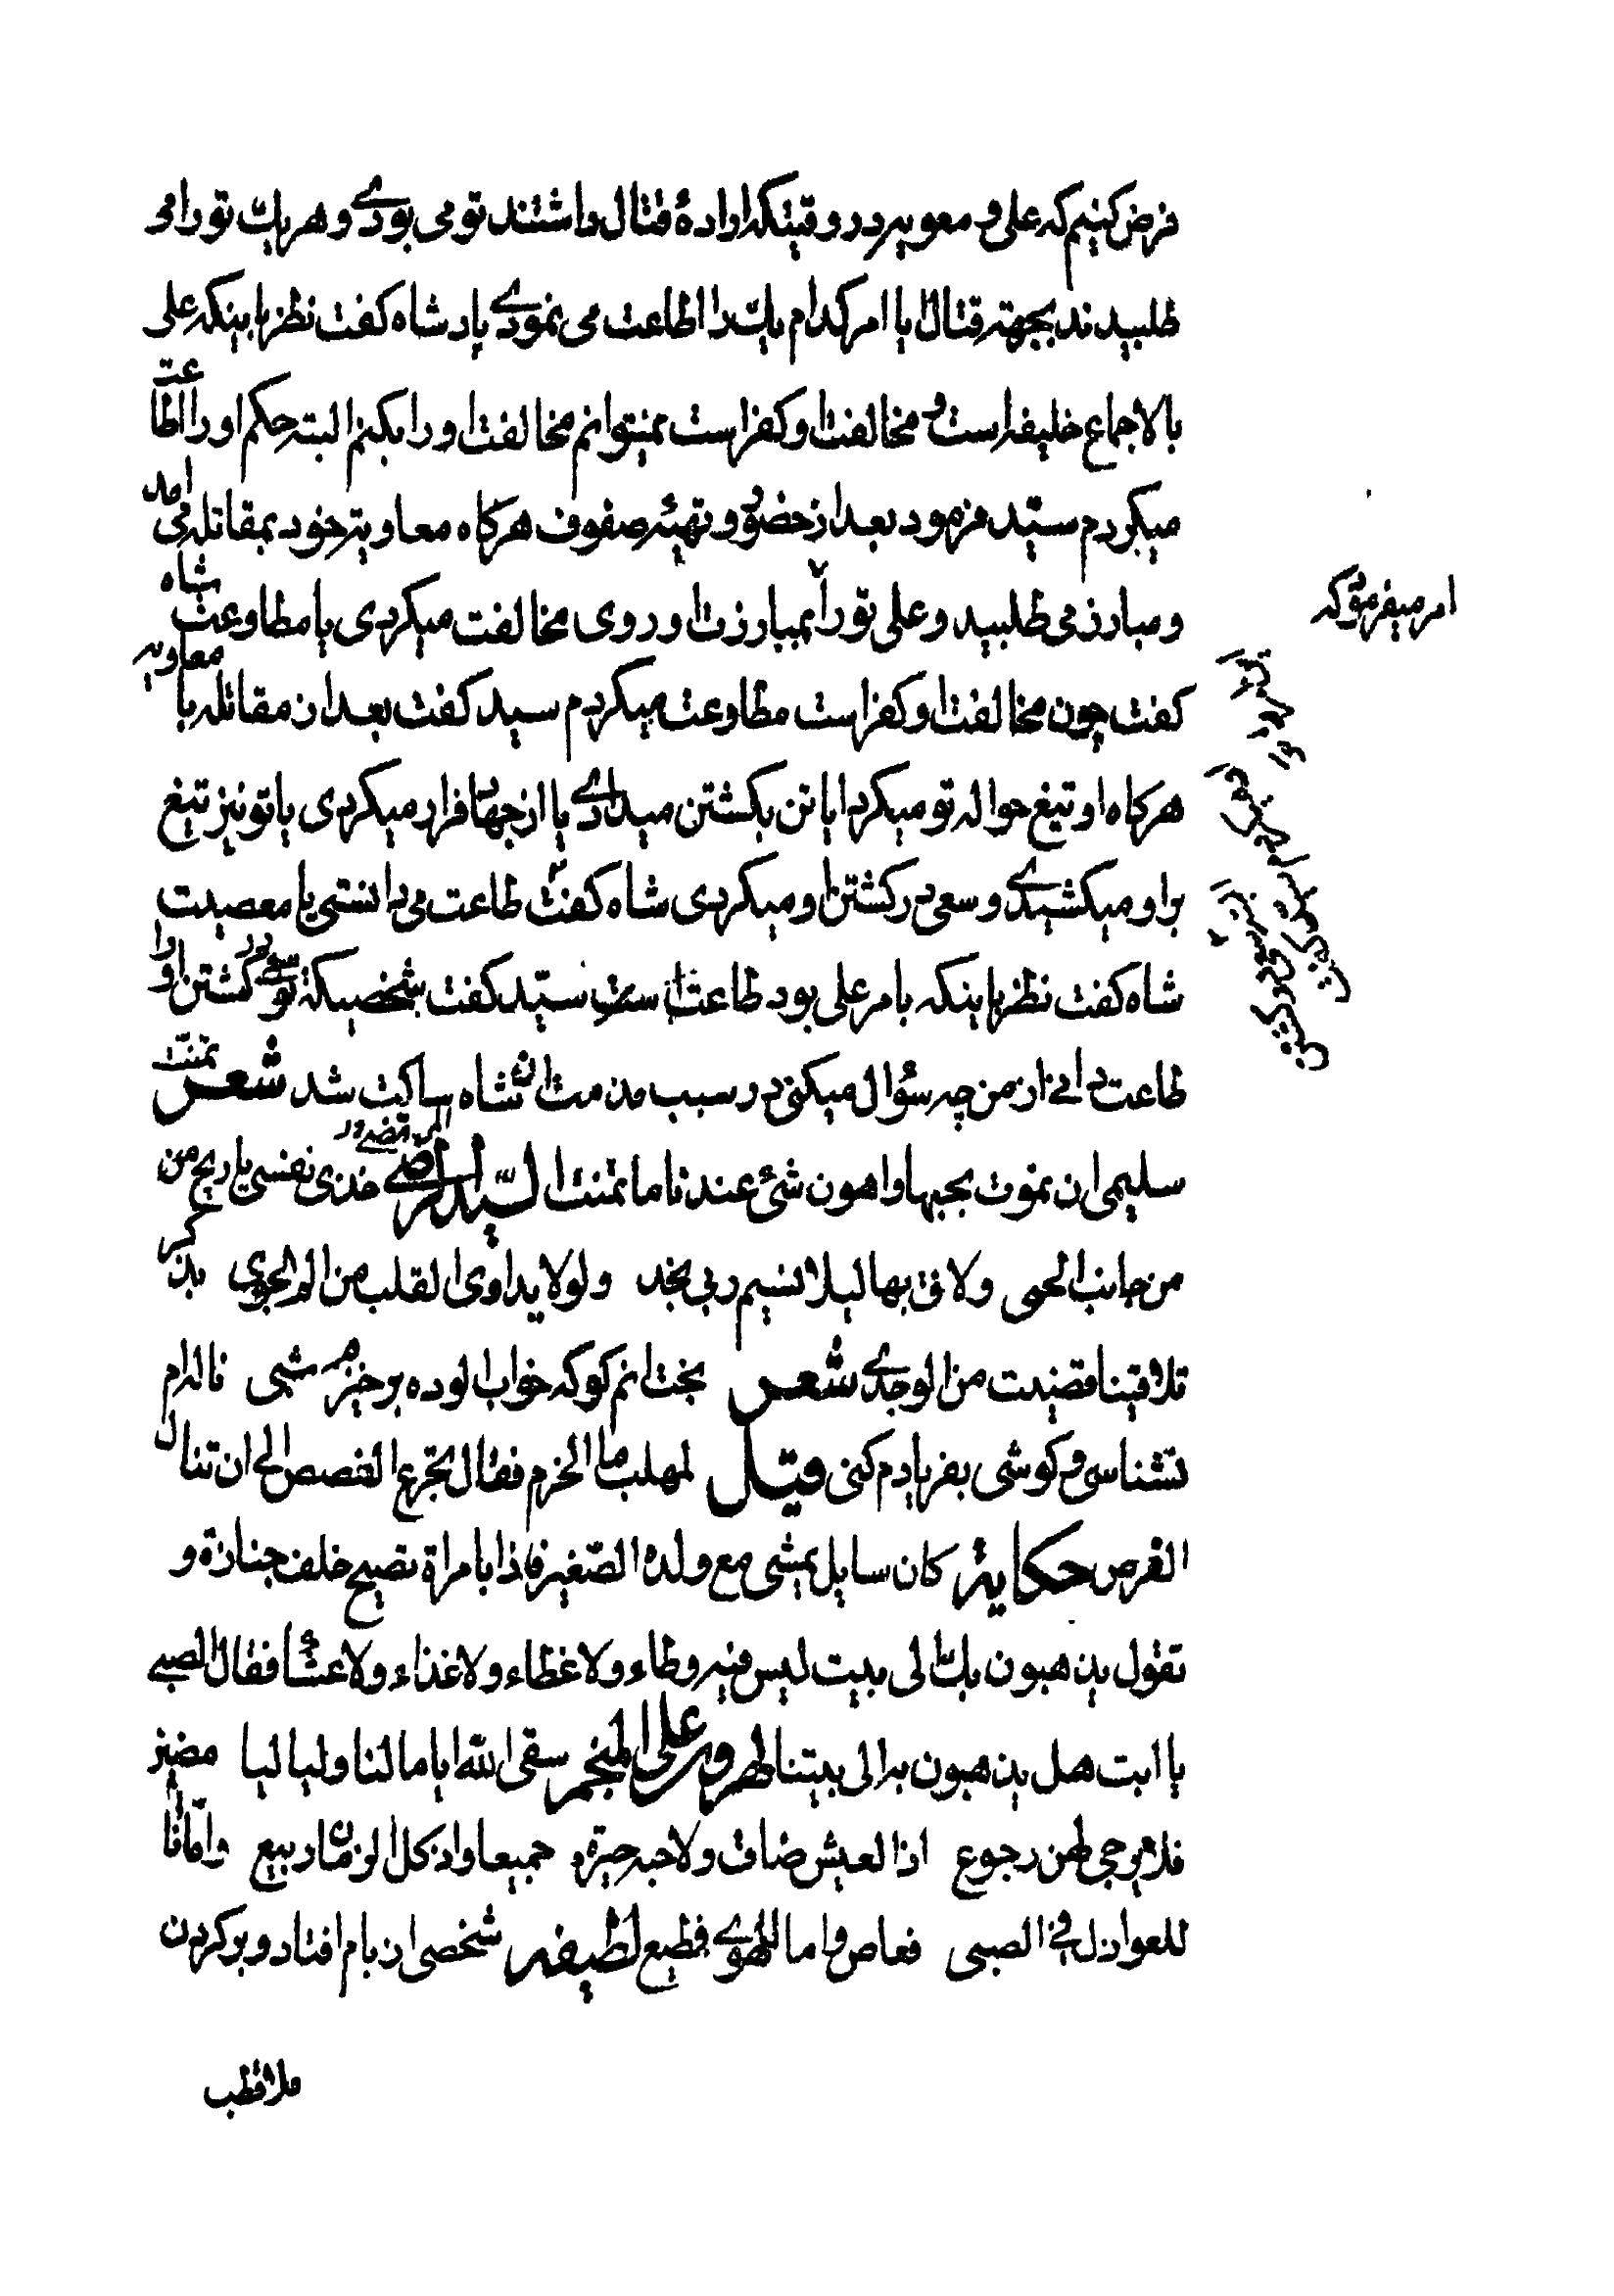 فرض کنیم که علی و معویه در وقتیکه اراده قتال داشتند تو می بودی و هر یک تو را می
طلبیدند بجهته قتال با امر کدام یک را اطاعت می نمودی پادشاه کفت نظر باینکه علی
بالاجماع خلیفه است و مخالفت او کفر است نمیتوانم مخالفت او را بکنم البته حکم او را اطاعت
میکردم سید فرمود بعد از حضور و تهیئه صفوف هرکاه معاویه خود بمقاتله می آمد
و مبارز می طلبید و علی تو را بمبارزت او روی مخالفت میکردی یا مطاوعت شاه
امر میفرمود که
کفت چون مخالفت او کفر است مطاوعت میکردم سید کفت بعد از مقاتله با معاویه
هرکاه او تیغ حواله تو میکرد ایا تن بکشتن میدادی یا از جهاد فرار میکردی یا تو نیز تیغ
بر او میکشیدی و سعی در کشتن او میکردی شاه کفت طاعت می دانستی یا معصیت
شاه کفت نظر باینکه بامر علی بود طاعت است سید کفت شخصیکه تو سعی در کشتن او را
طاعت دانی از من چه سؤال میکنی در سبب مذمت ان شاه ساکت شد شعر تمنت
سلیمی ان نموت بحبها و اهون شئ عندنا ما تمنت السید المرتضی خذی نفسی یا ریح من
من جانب الحمی ولاقی بها لیلا نسیم ربی نجد ولولا یداوی القلب من الم الجوی بذکر
تلاقینا قضیت من الوجد شعر بختانم کو که خواب الوده برخیزم شبی ناله ام
نشناسی و کوشی بفریادم کنی قیل لمهلب ما الحزم فقال تجرع الغصص الی ان تنال
الفرص حکایة کان سایل یمشی مع ولده الصغیر فاذا بامراة تصیح خلف جنازة و
تقول یذهبون بک الی بیت لیس فیه وطاء ولا غطاء ولا غذاء ولا عشاء فقال الصبی
یا ابت هل یذهبون به الی بیتنا لهرون علی المنجم سقی الله ایاما لنا و لیالیا مضین
فلا یرجی لهن رجوع اذ العیش صاف والاحبة جیرة جمیعا و اذ کل الزمان ربیع و اذ انا اما
للعواذل فی الصبی فعاص و اما للهوی فطیع لطیفه شخصی از بام افتاد و بر کردن
ملا قطب